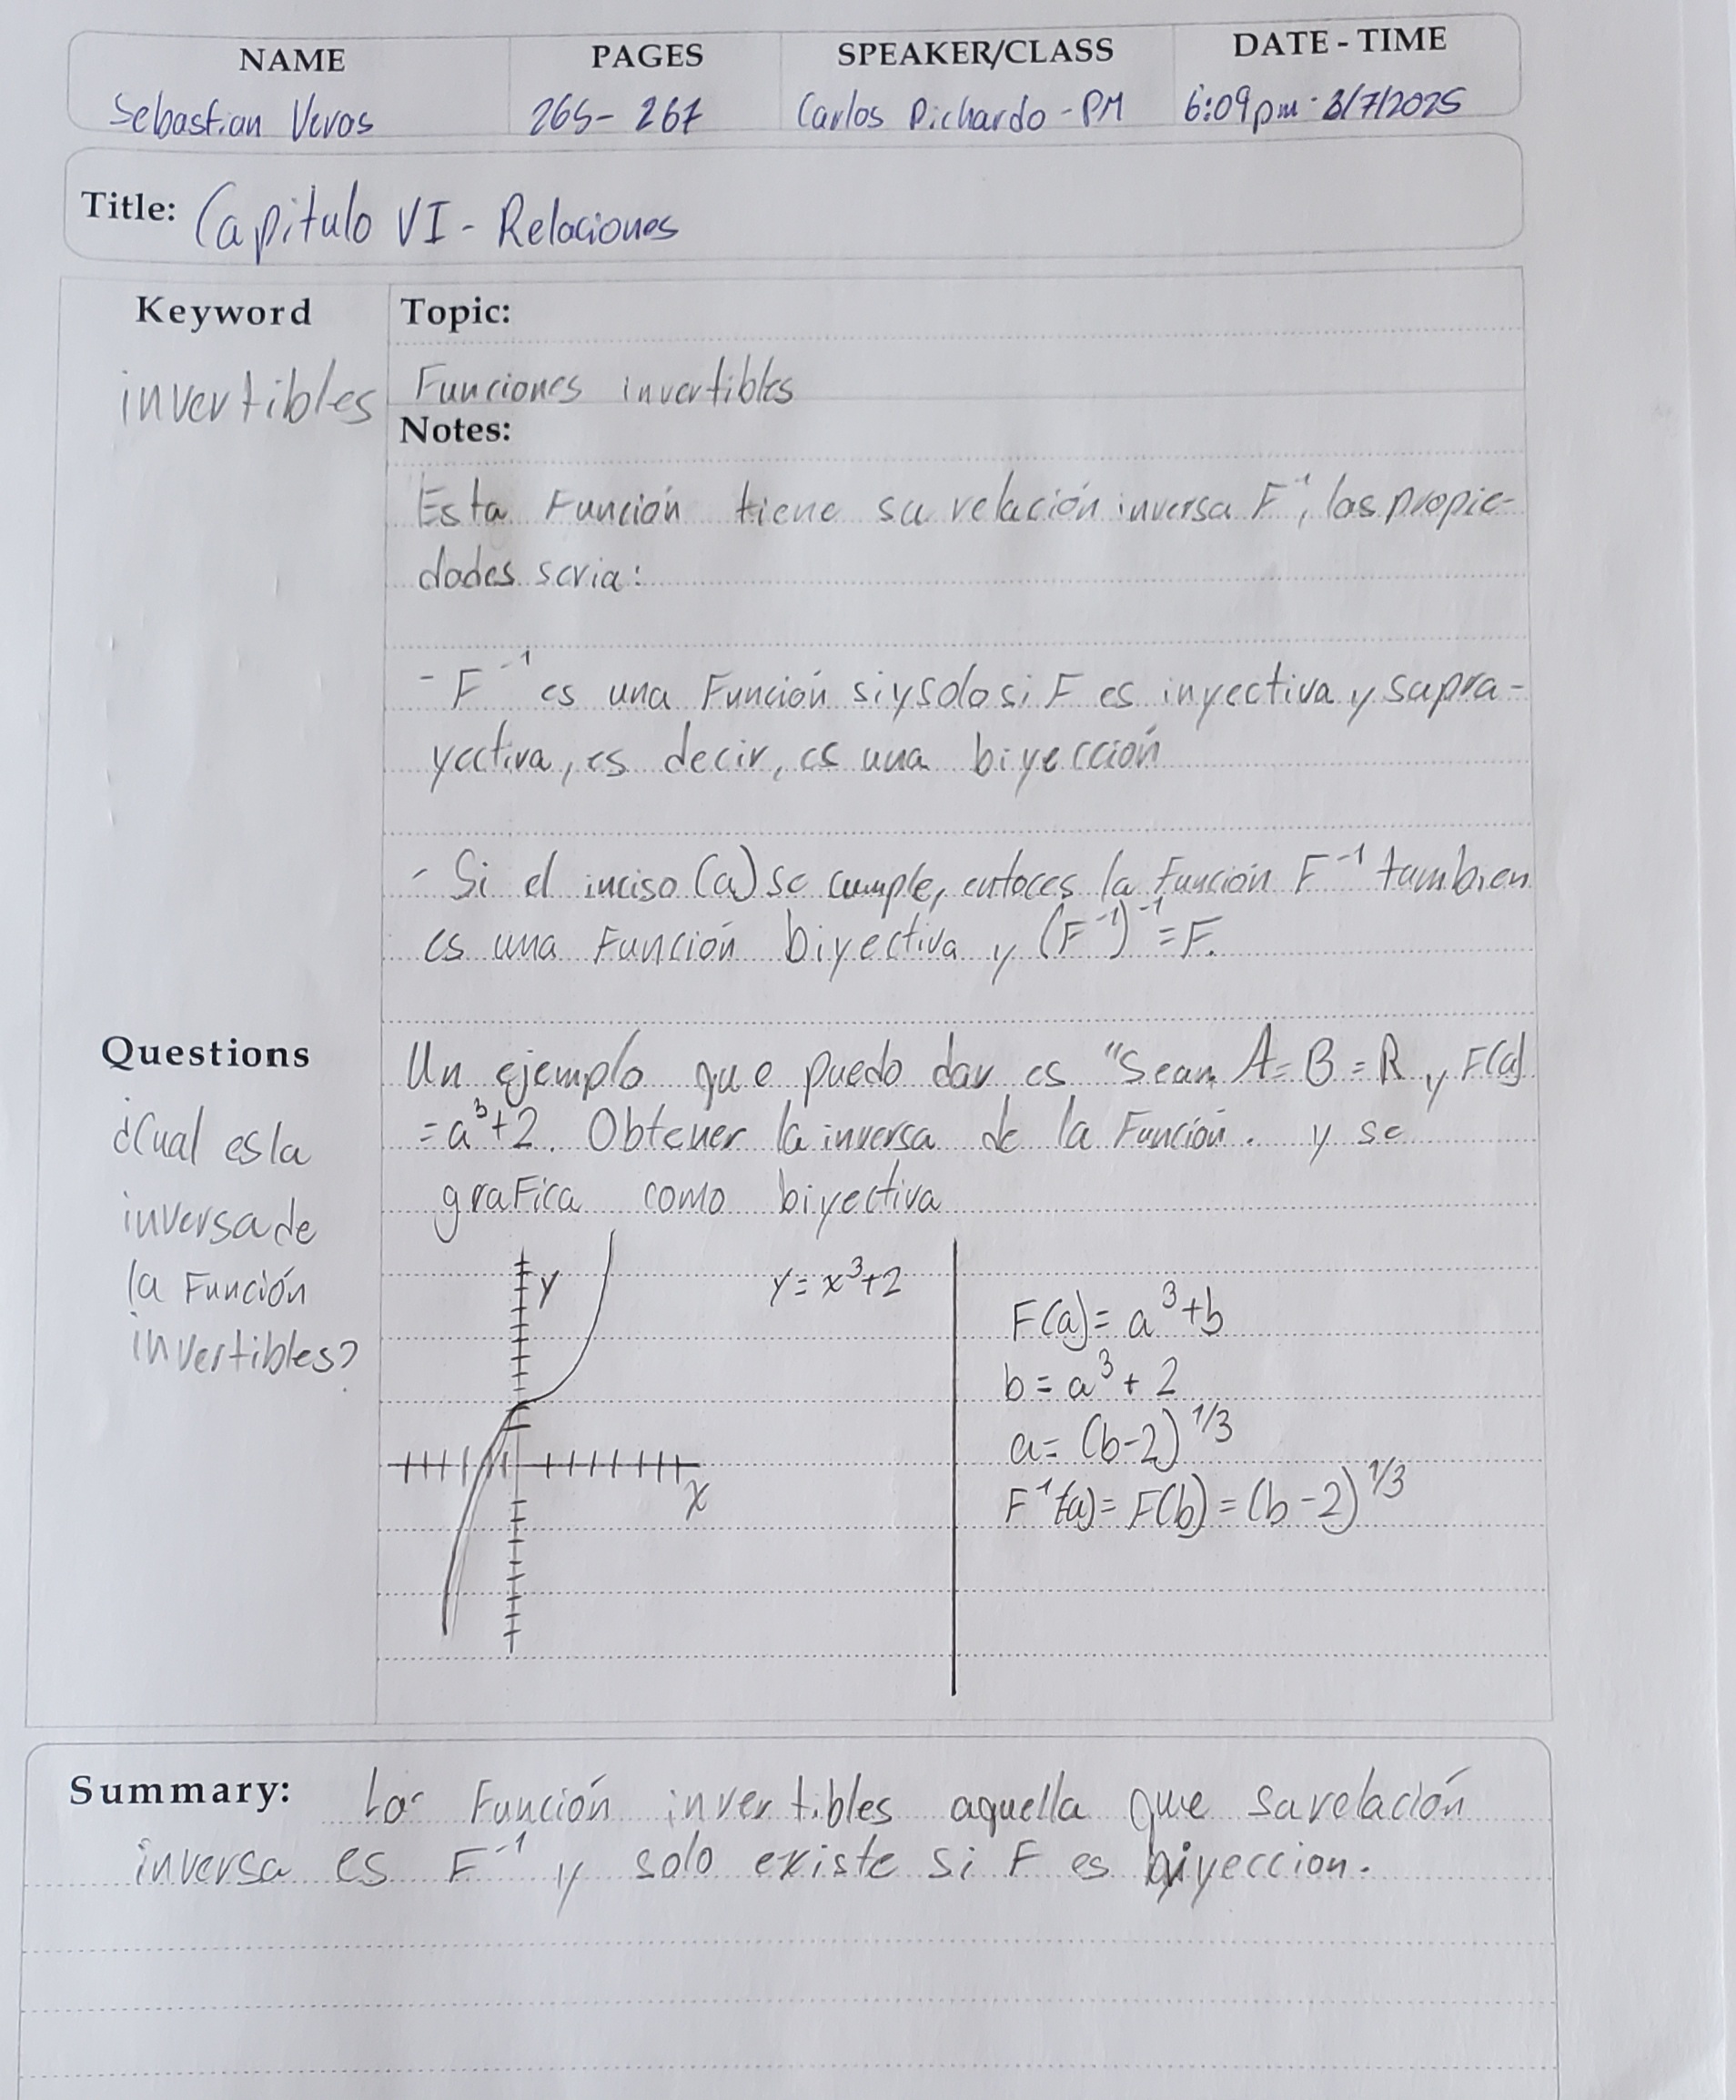 NAME PAGES SPEAKER/CLASS DATE - TIME
Sebastian Veras 265-267 Carlos Pichardo - PM 6:09pm - 3/7/2025
Title: Capitulo VI - Relaciones
Keyword Topic:
invertibles Funciones invertibles
Notes:
Esta Función tiene su relación inversa F⁻¹, las propie-
dades seria:
- F⁻¹ es una Función si y solo si F es inyectiva y supra-
yectiva, es decir, es una biyección
- Si el inciso (a) se cumple, entoces la Función F⁻¹ tambien
es una Función biyectiva y (F⁻¹)⁻¹ = F.
Questions
¿Cual es la
inversa de
la Función
invertibles?
Un ejemplo que puedo dar es "Sean A = B = R y F(a)
= a³+2. Obtener la inversa de la Función. y se
grafica como biyectiva
y
y = x³+2
x
F(a) = a³+b
b = a³ + 2
a = (b-2)^1/3
F⁻¹(a) = F(b) = (b-2)^1/3
Summary: La Función invertibles aquella que su relación
inversa es F⁻¹ y solo existe si F es biyeccion.